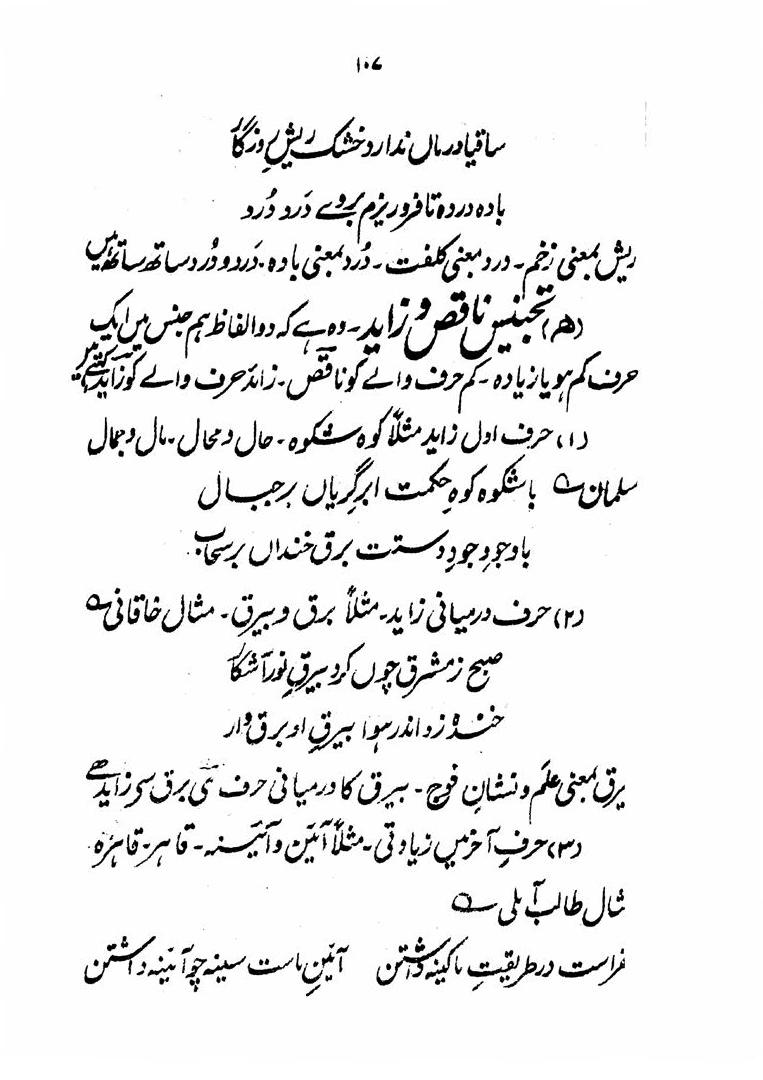 ۱۰۷
ساقیا درماں ندارد خشک ریشِ روزگار
بادہ در دہ تا فرو ریزم بروے دَرد دُرد
ریش بمعنی زخم۔ درد بمعنی کلفت۔ دُرد بمعنی بادہ۔ دَرد و دُرد ساتھ ساتھ ہیں
(۵) تجنیس ناقص و زاید۔ وہ ہے کہ دو الفاظ ہم جنس میں ایک
حرف کم ہو یا زیادہ۔ کم حرف والے کو ناقص۔ زائد حرف والے کو زاید کہتے ہیں
(۱) حرف اول زاید مثلاً کوہ شکوہ۔ حال و محال۔ مال و جمال
سلمان ؎ باشکوہ کوہِ حکمت ابر گریاں بر جبال
باوجودِ جودِ دستت برق خنداں بر سحاب
(۲) حرف درمیانی زاید۔ مثلاً برق و بیرق۔ مثال خاقانی ؎
صبح ز مشرق چوں کرد بیرقِ نور آشکار
خندہ زد اندر ہوا بیرقِ او برق وار
یرق بمعنی علَم و نشانِ فوج۔ بیرق کا درمیانی حرف ی برق سی زاید ہے
(۳) حرفِ آخر میں زیادتی۔ مثلاً آئین و آئینہ۔ قاہر۔ قاہرہ
شال طالب آملی ؎
فراست در طریقیتِ ما کینہ داشتن آئینِ ماست سینہ چو آئینہ داشتن